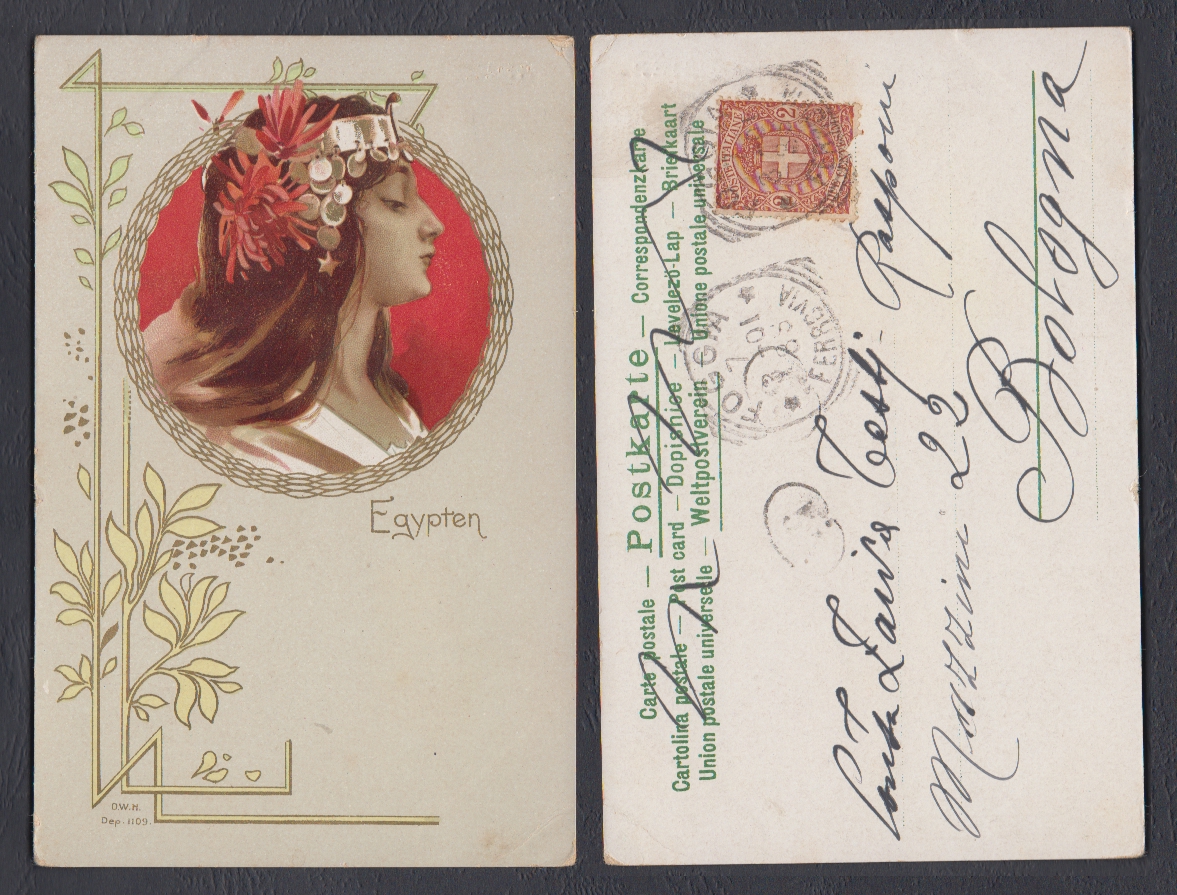 Egypten
D.W.H.
Dep. 1109.
Carte postale — Postkarte — Correspondenzkarte
Cartolina postale — Post card — Dopisnice — Levelezö-Lap — Briefkaart
Union postale universelle — Weltpostverein Unione postale universale
2
2
FERROVIA
01
Testj- Rasponi
Mazzini 22
Bologna